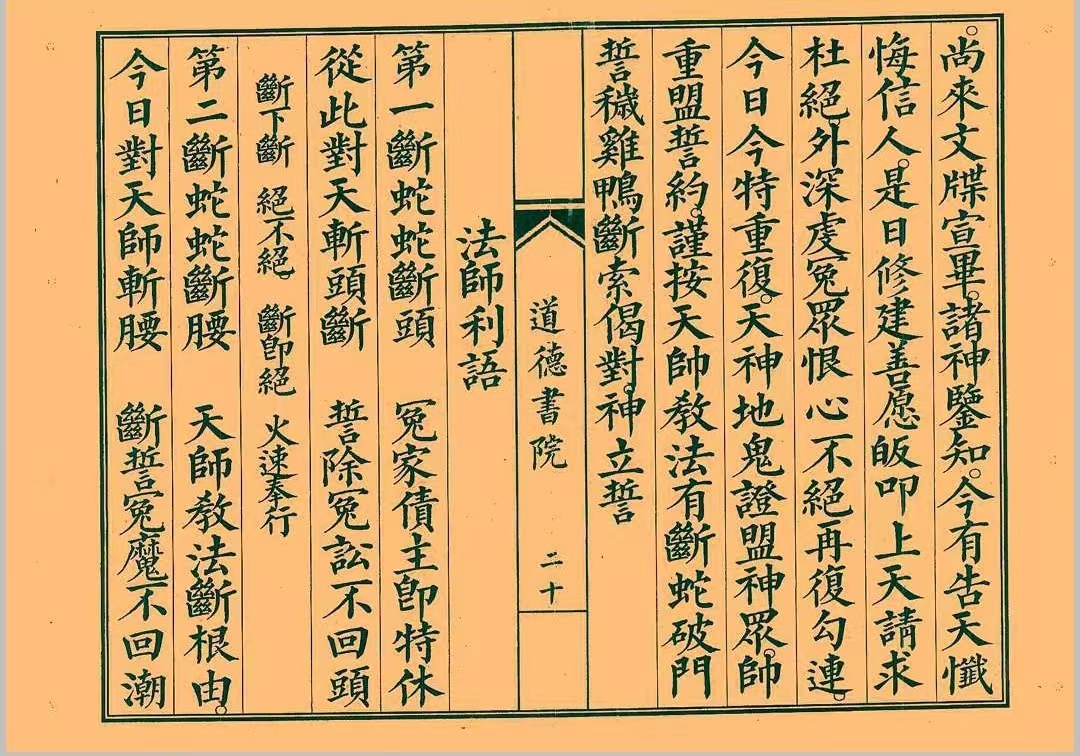 尚來文牒宣畢。諸神鑒知。今有告天懺
悔信人。是日修建善愿皈叩上天請求
杜絕。外深虔冤眾恨心不絕再復勾連。
今日今特重復。天神地鬼證盟神眾。帥
重盟誓約。謹按天帥教法有斷蛇破門
誓穢雞鴨斷索偈對。神立誓
道德書院 二十
法師利語
第一斷蛇蛇斷頭 冤家債主卽特休
從此對天斬頭斷 誓除冤訟不回頭
斷下斷 絕不絕。 斷卽絕 火速奉行
第二斷蛇蛇斷腰 天師教法斷根由。
今日對天師斬腰 斷誓冤魔不回潮